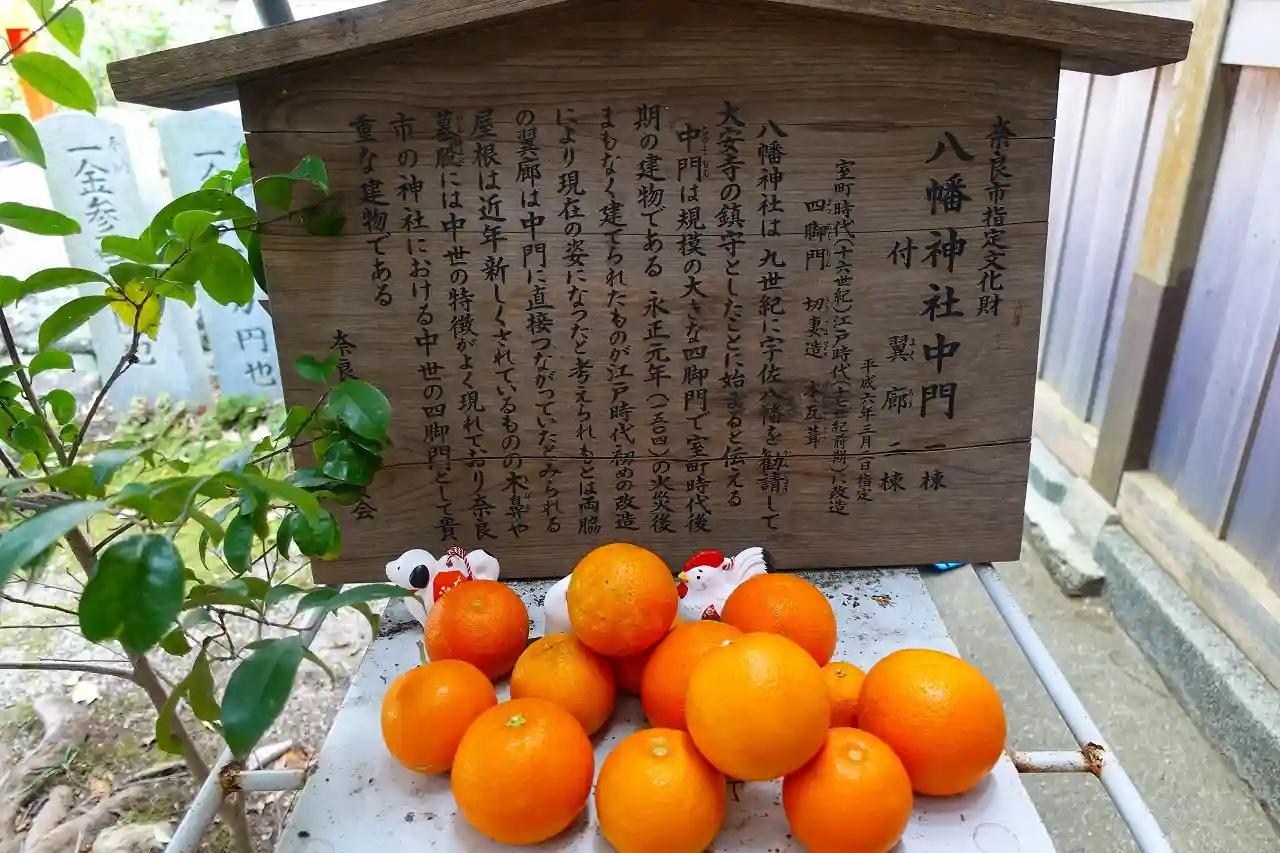 奈良市指定文化財
八幡神社中門 一棟
付 翼廊 二棟
平成六年三月三日指定
室町時代(十六世紀)江戸時代(十七世紀前期)に改造
四脚門 切妻造 本瓦葺
八幡神社は 九世紀に宇佐八幡を勧請して
大安寺の鎮守としたことに始まると伝える
中門は規模の大きな四脚門で室町時代後
期の建物である 永正元年(一五〇四)の火災後
まもなく建てられたものが江戸時代初めの改造
により現在の姿になったと考えられ もとは両脇
の翼廊は中門に直接つながっていたとみられる
屋根は近年新しくされているものの木鼻や
蟇股には中世の特徴がよく現れており奈良
市の神社における中世の四脚門として貴
重な建物である
奈良
会
一金参
一
円也
也